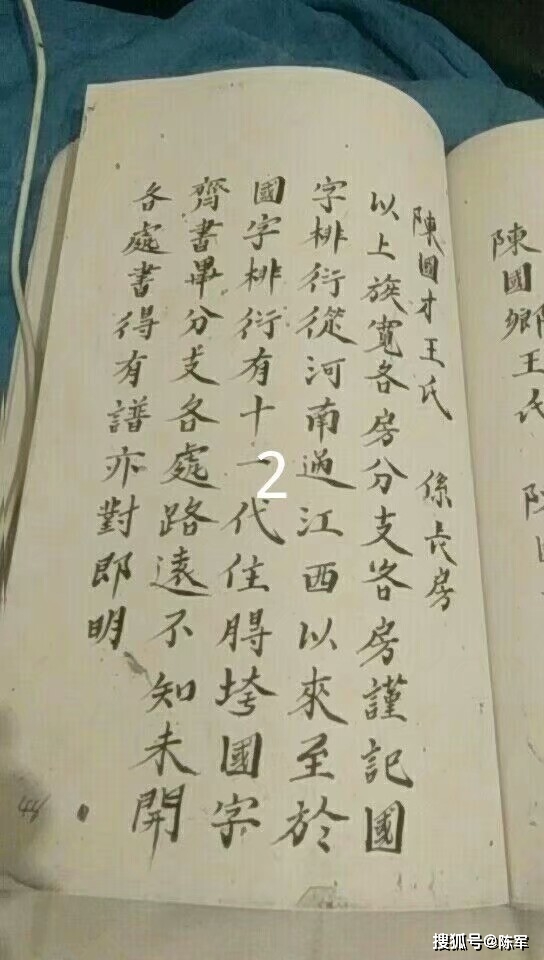 陳國鄉王氏
陳國才王氏 係長房
以上族寬各房分支各房謹記國
字排衍從河南過江西以來至於
國字排衍有十一代住膊垮國字
齊書畢分支各處路遠不知未開
各處書得有譜亦對郎明
2
44
搜狐号@陈军